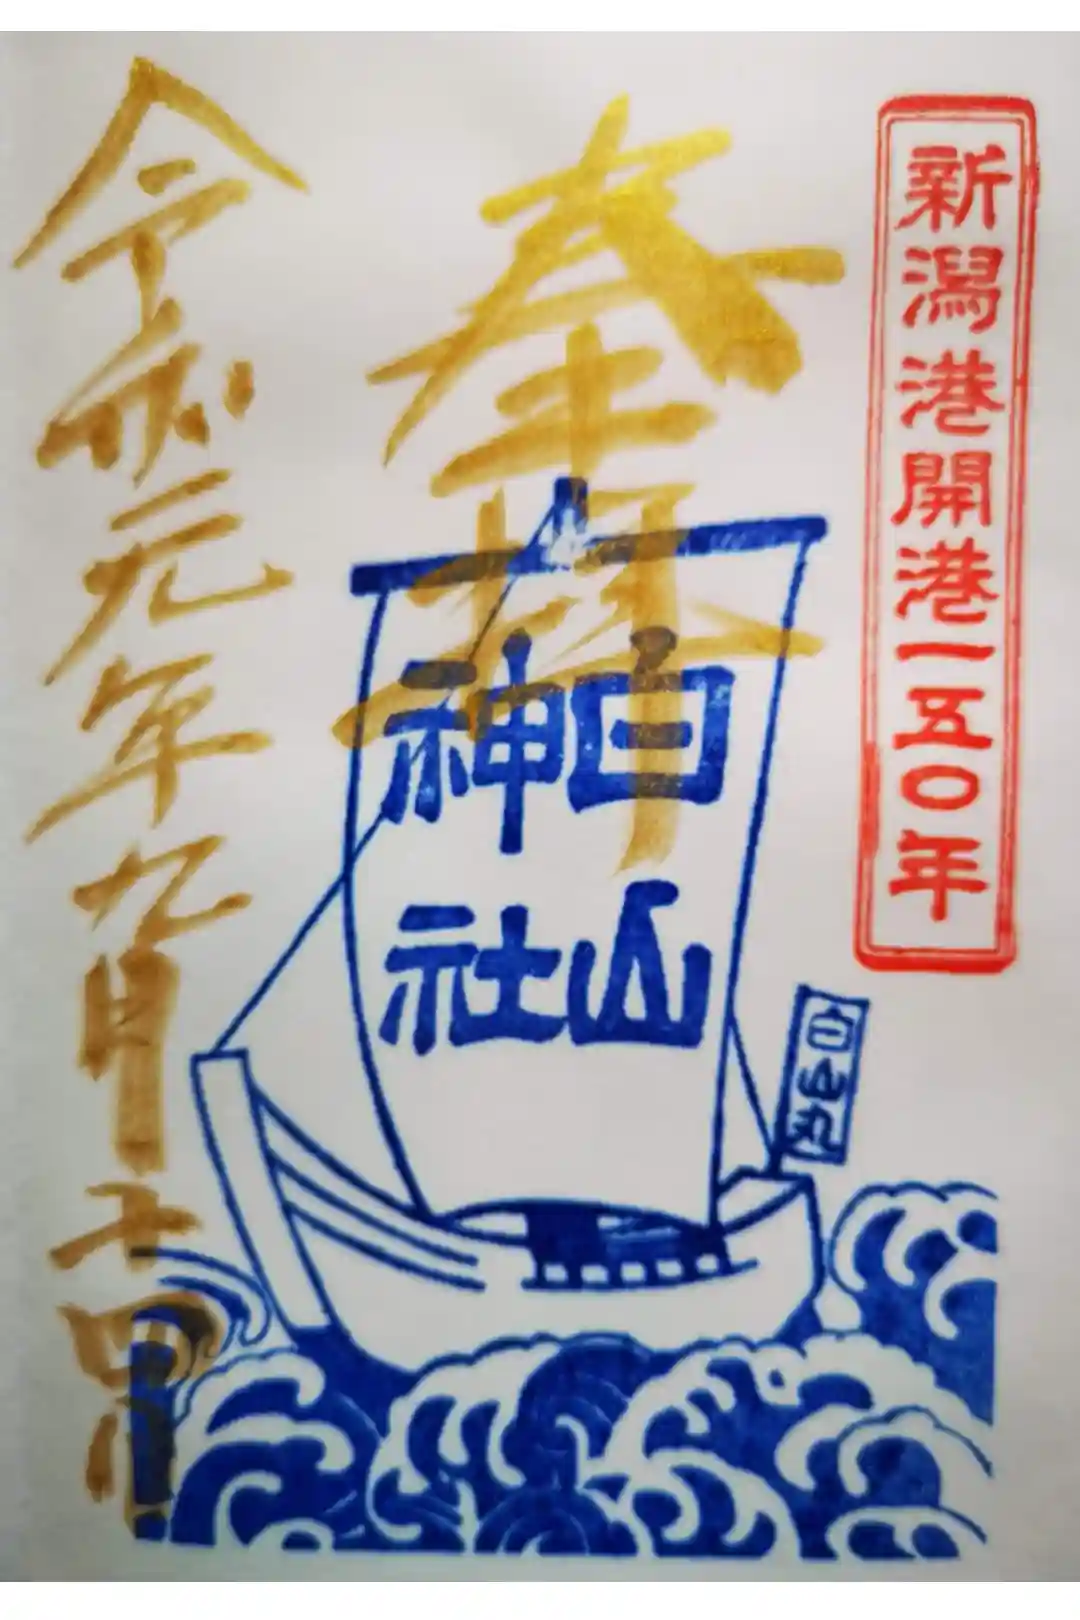 新潟港開港一五〇年
奉拝
白山
神社
白山丸
令和元年九月十四日